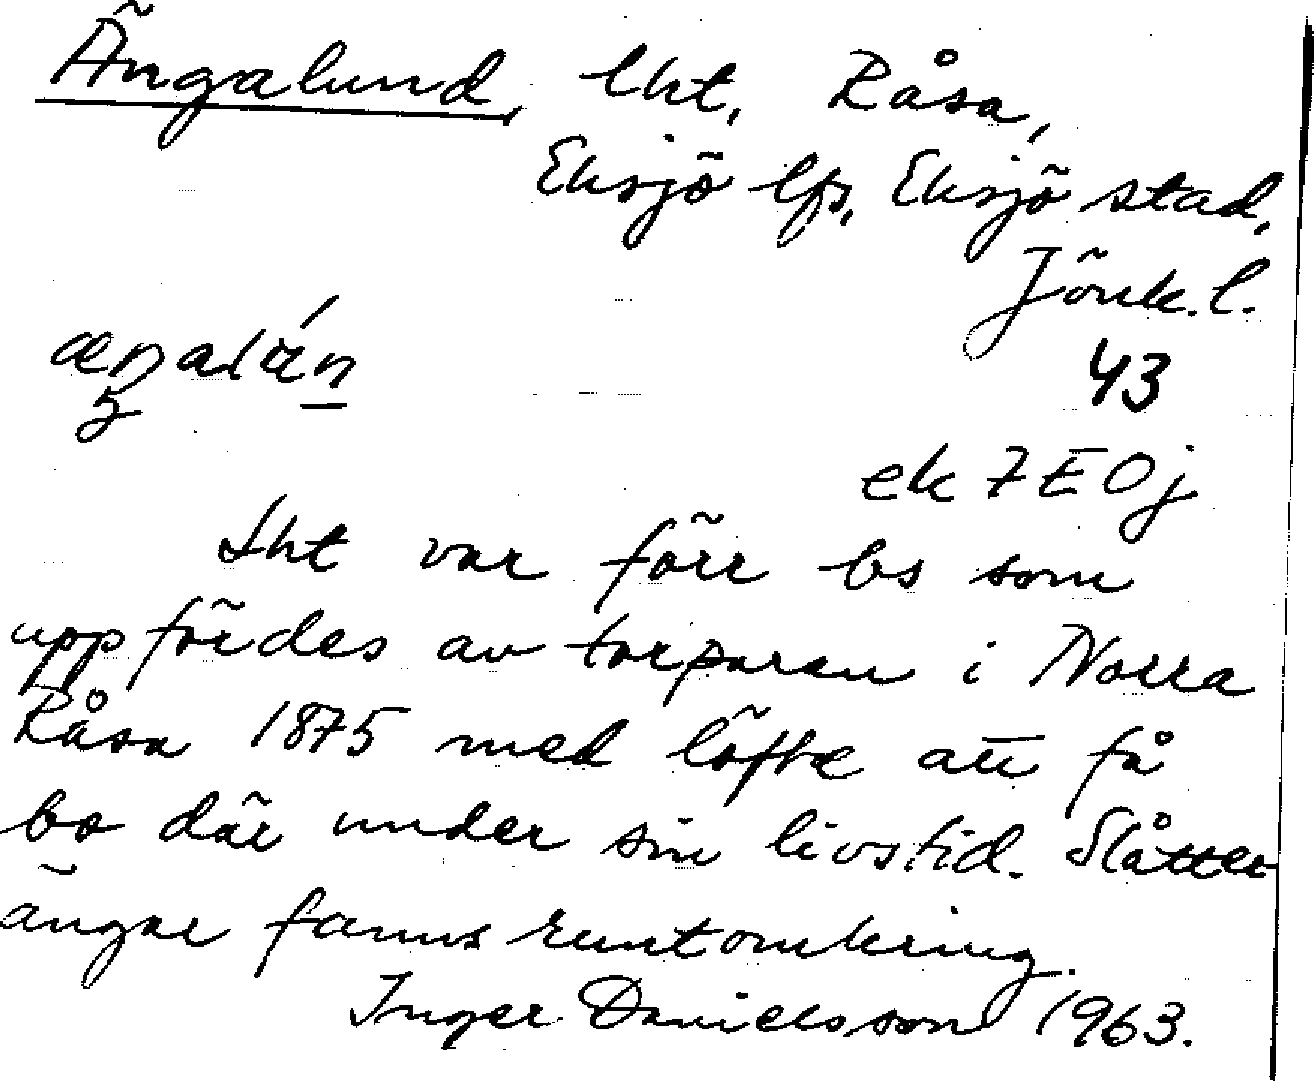 Ängalund, lht, Råsa,
Eksjö lfs, Eksjö stad,
Jönk. l.
43
ek 7E0j
Lht var förr bs som
uppfördes av torparen i Norra
Råsa 1875 med löfte att få
bo där under sin livstid. Slåtter
ängar fanns runtomkring.
Inger Danielsson 1963.